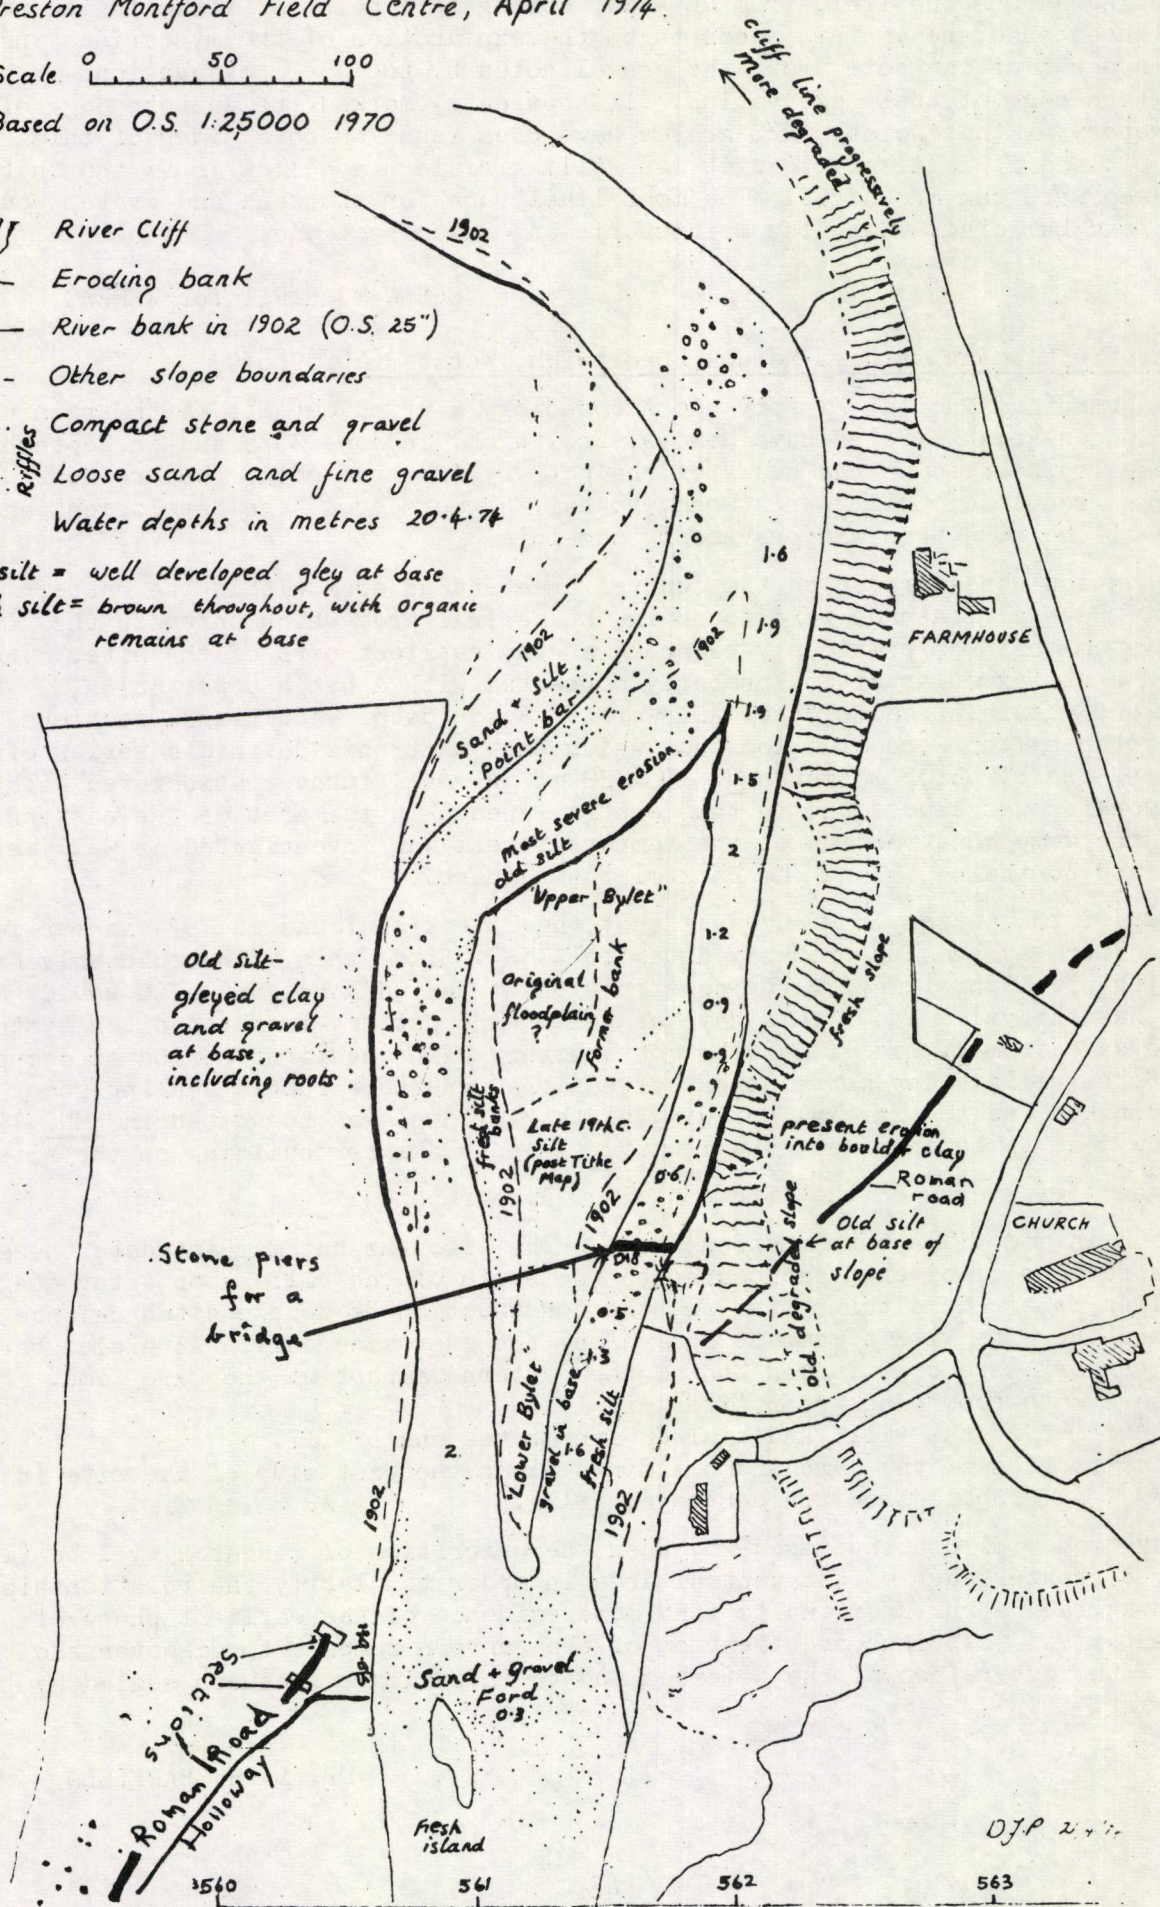 Preston Montford Field Centre, April 1974.
Scale 0 50 100
Based on O.S. 1:25000 1970
River Cliff
Eroding bank
River bank in 1902 (O.S. 25")
Other slope boundaries
Riffles
Compact stone and gravel
Loose sand and fine gravel
Water depths in metres 20·4·74
silt = well developed gley at base
silt = brown throughout, with organic
remains at base
cliff line progressively
more degraded
1902
1·6
1·9
FARMHOUSE
1902
1902
Sand + silt
point bar
1·9
1·5
most severe erosion
old silt
2
"Upper Bylet"
1·2
Original
floodplain
?
former bank
0·9
fresh slope
Old silt-
gleyed clay
and gravel
at base,
including roots
0·9
fresh silt
banks
Late 19th c.
silt
(post Tithe
Map)
1902
1902
0·6
present erosion
into boulder clay
Roman
road
Old silt
at base of
slope
old degraded slope
CHURCH
Stone piers
for a
bridge
0·5
1·3
"Lower Bylet"
gravel in base
1·6
fresh silt
2
1902
1902
Sections
Roman Road
Holloway
Sand + gravel
Ford
0·3
Fresh
island
DJP
³560 561 562 563